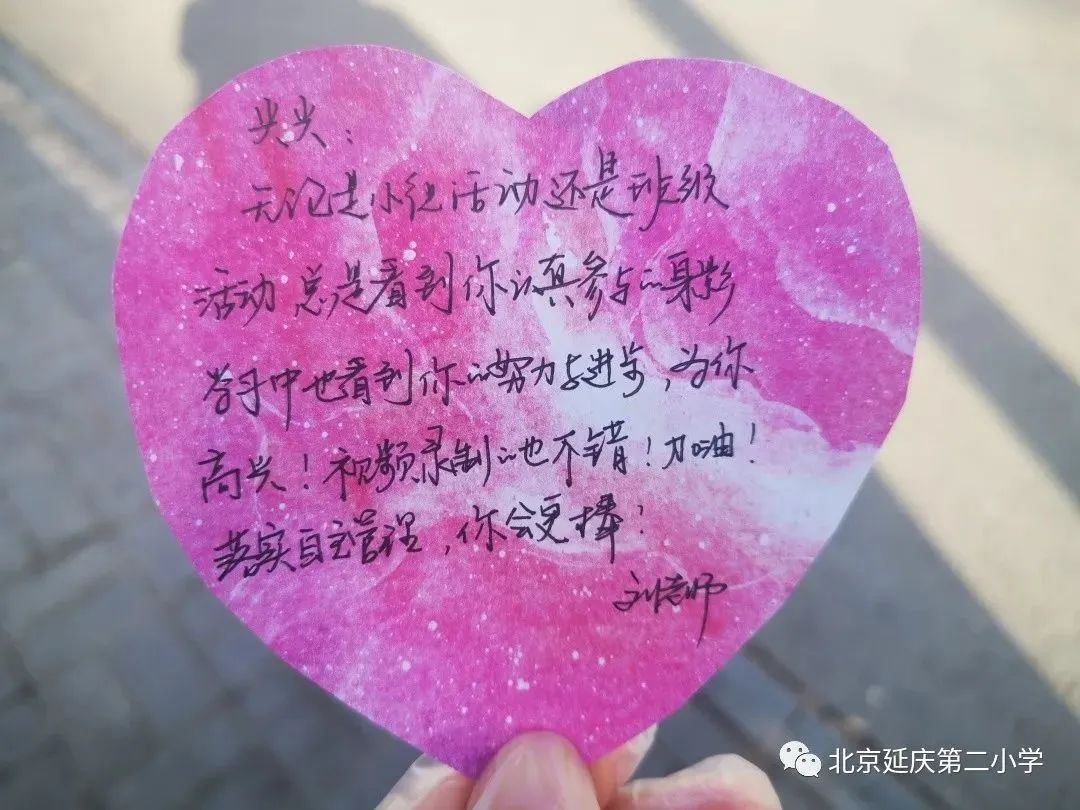 无论是小组活动还是班级
活动总是看到你认真参与的身影
学习中也看到你的努力与进步,为你
高兴!视频录制的也不错!加油!
落实自主管理,你会更棒!
刘老师
北京延庆第二小学